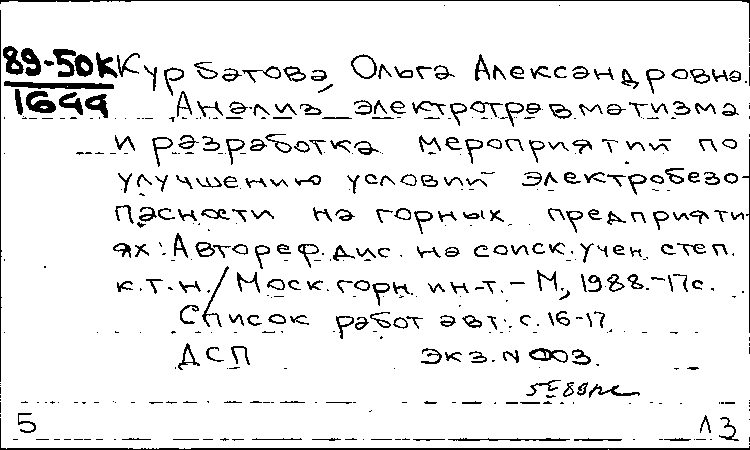 89-50К Курбатова, Ольга Александровна.
1699 Анализ электротравматизма
и разработка мероприятий по
улучшению условий электробезо-
пасности на горных предприяти-
ях: Автореф. дис. на соиск. учен. степ.
к.т.н./ Моск. горн. ин-т. - М., 1988.-17с.
Список работ авт.: с. 16-17
ДСП экз. N 003.
5 13